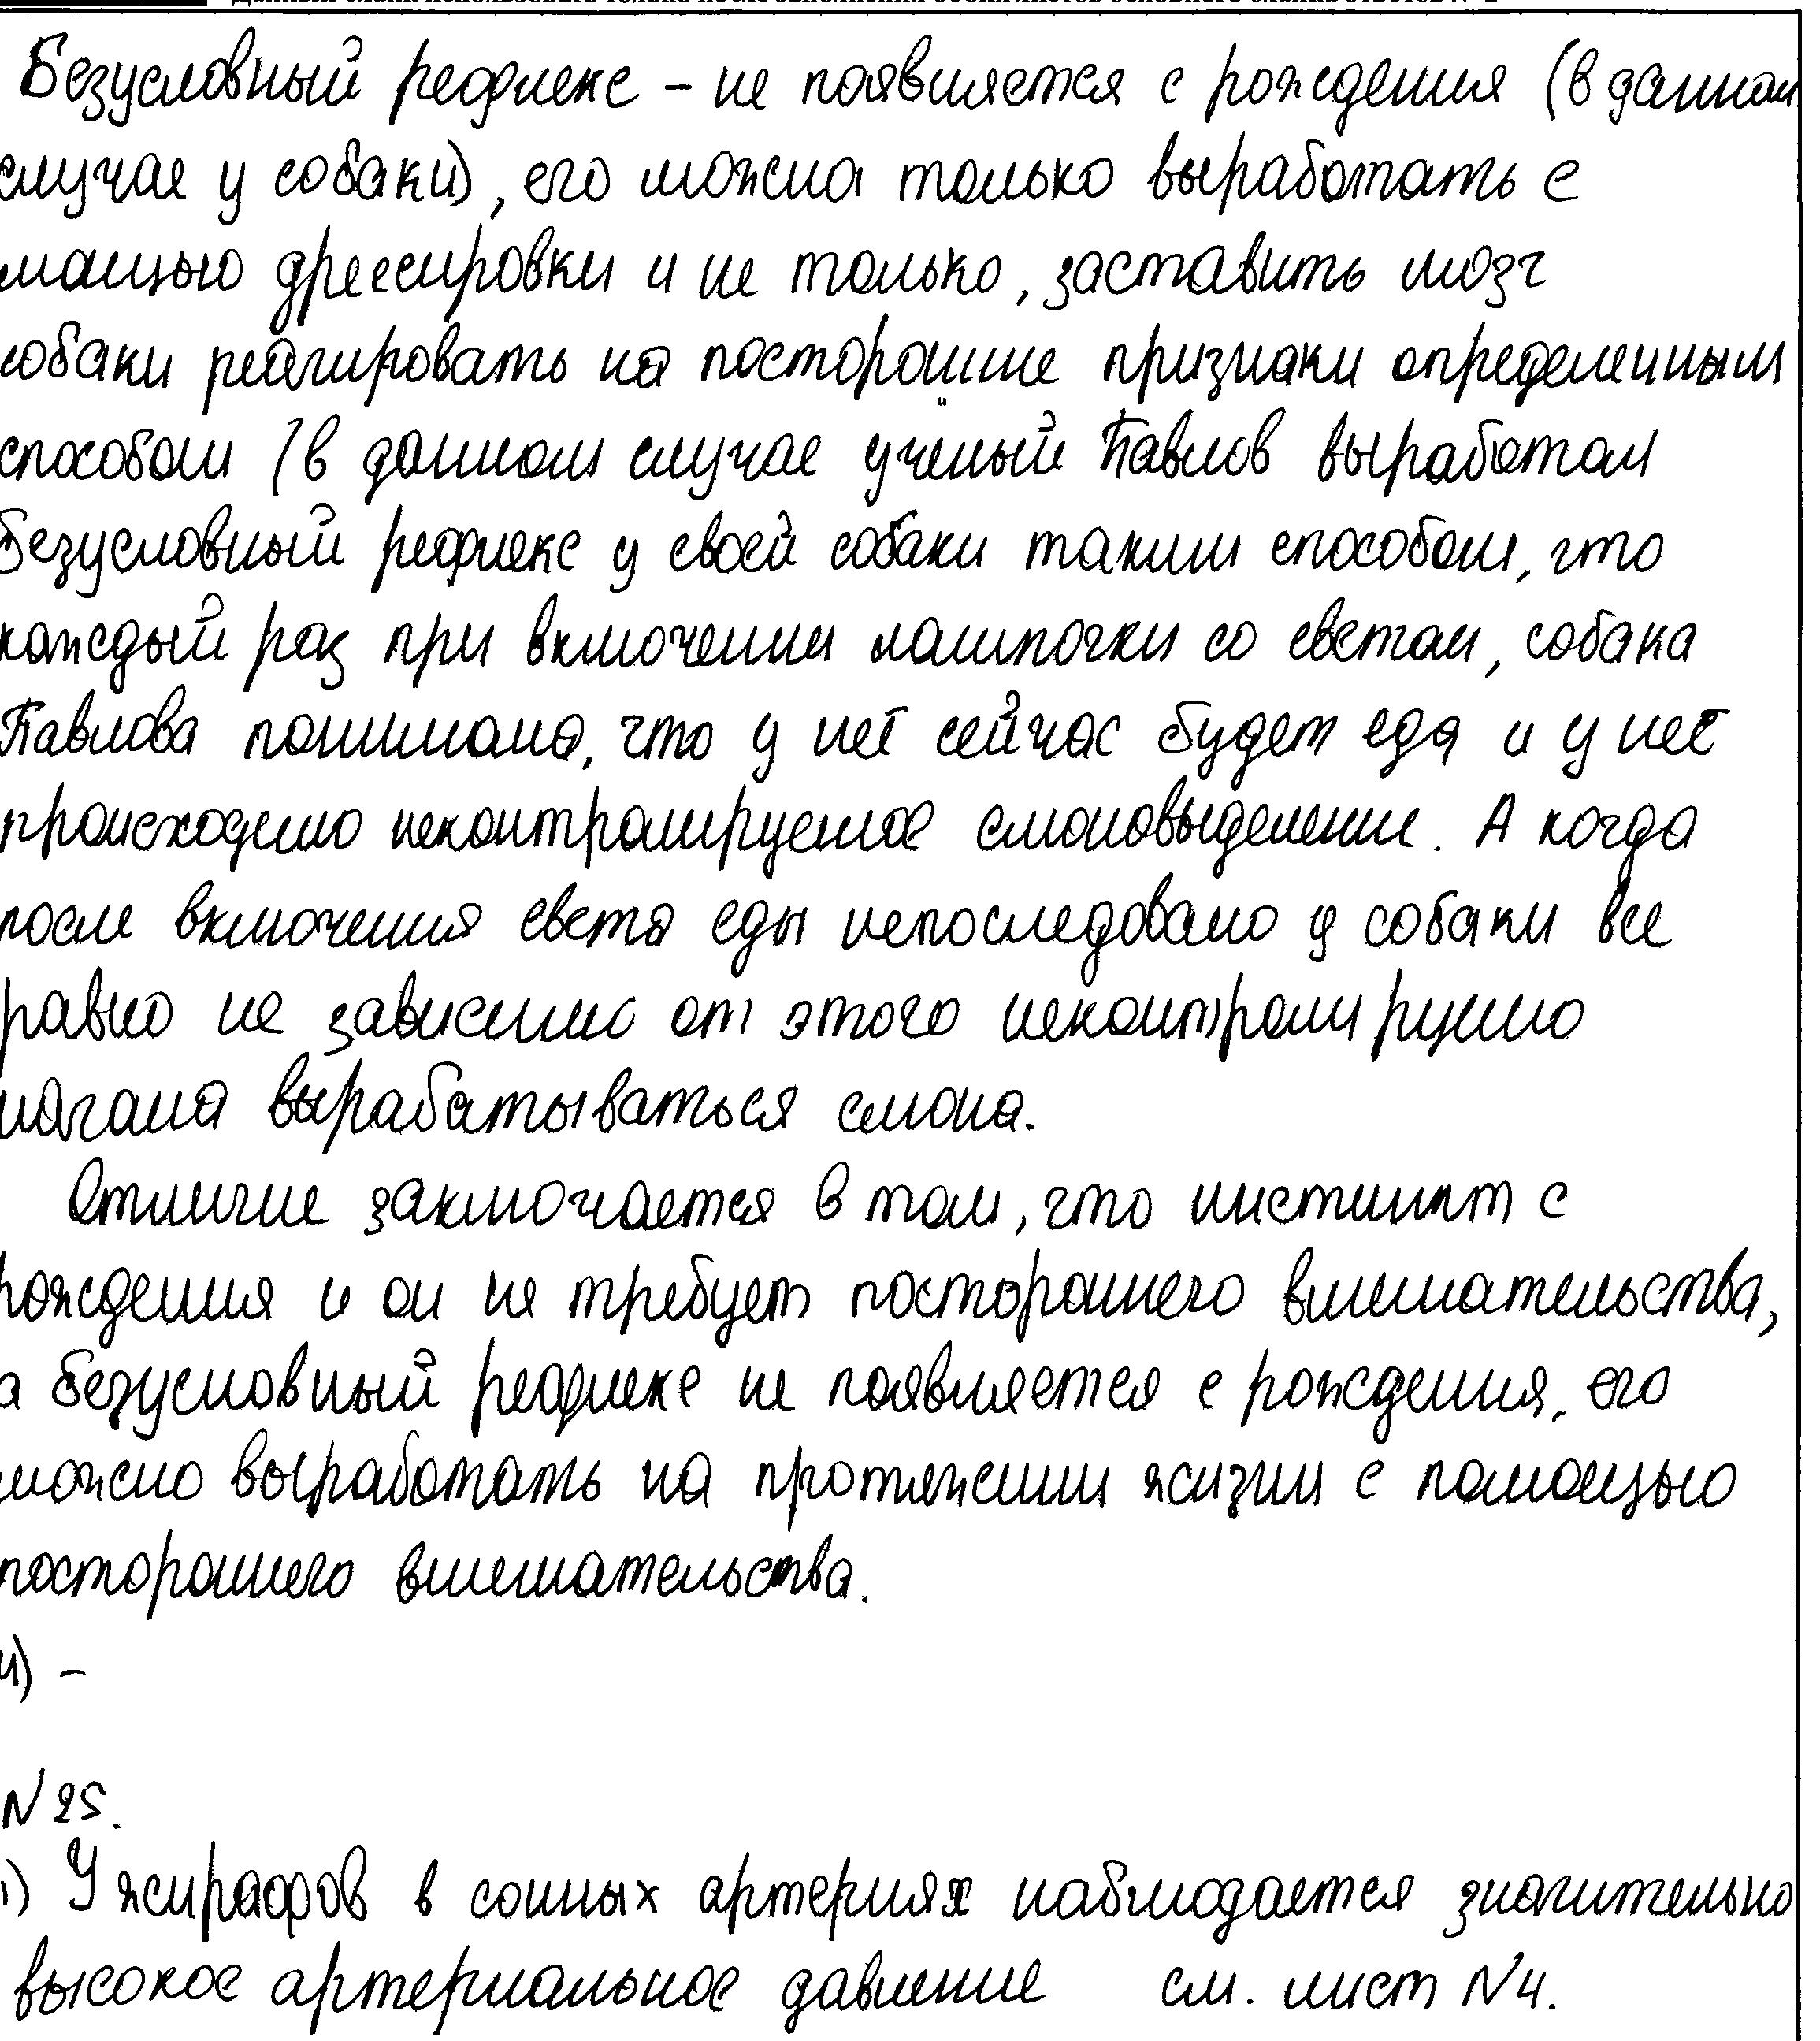 Безусловный рефлекс – не появляется с рождения (в данном
случае у собаки), его можна только выработать с
мощью дрессировки и не только, заставить мозг
собаки реагировать на посторонние признаки определенным
способом (в данном случае ученый Павлов выработал
безусловный рефлекс у своей собаки таким способом, что
каждый раз при включении лампочки со светом, собака
Павлова понимала, что у неё сейчас будет еда и у неё
происходило неконтролируемое слюновыделение. А когда
после включения света еды непоследовало у собаки все
равно не зависимо от этого неконтролируемо
начала вырабатываться слюна.
Отличие заключается в том, что инстинкт с
рождения и он не требует постороннего вмешательства,
а безусловный рефлекс не появляется с рождения, его
можно выработать на протяжении жизни с помощью
постороннего вмешательства.
4) –
N 25.
1) У жирафов в сонных артериях наблюдается значительно
высокое артериальное давление см. лист N4.